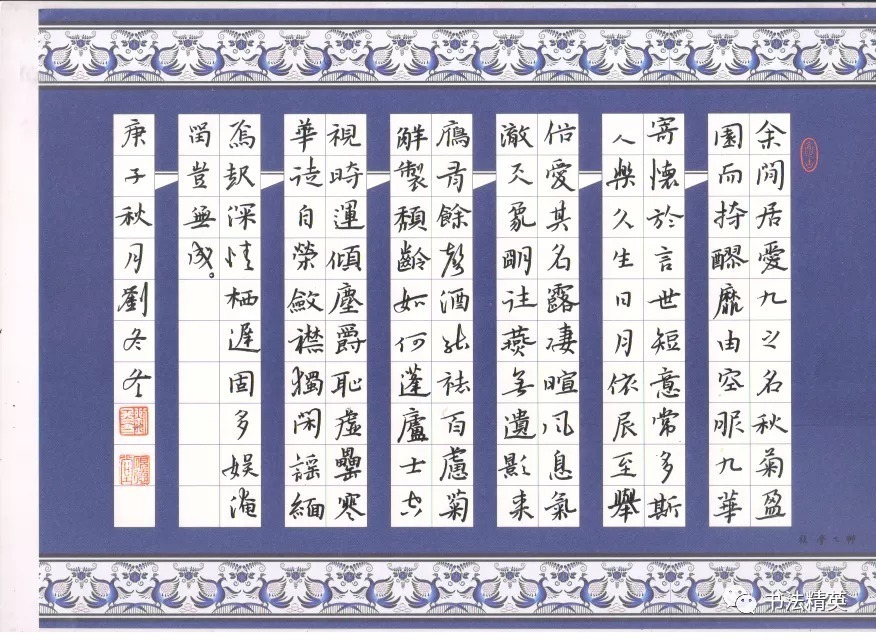 余閒居愛九之名秋菊盈
園而持醪靡由空服九華
寄懷於言世短意常多斯
人樂久生日月依辰至舉
俗愛其名露凄暄風息氣
澈天象明往燕無遺影来
鴈有餘聲酒能祛百慮菊
解製頹齡如何蓬廬士空
視時運傾塵爵恥虛罍寒
華徒自榮斂襟獨閑謡緬
焉起深情栖遲固多娛淹
留豈無成。
庚子秋月劉冬冬
书法精英